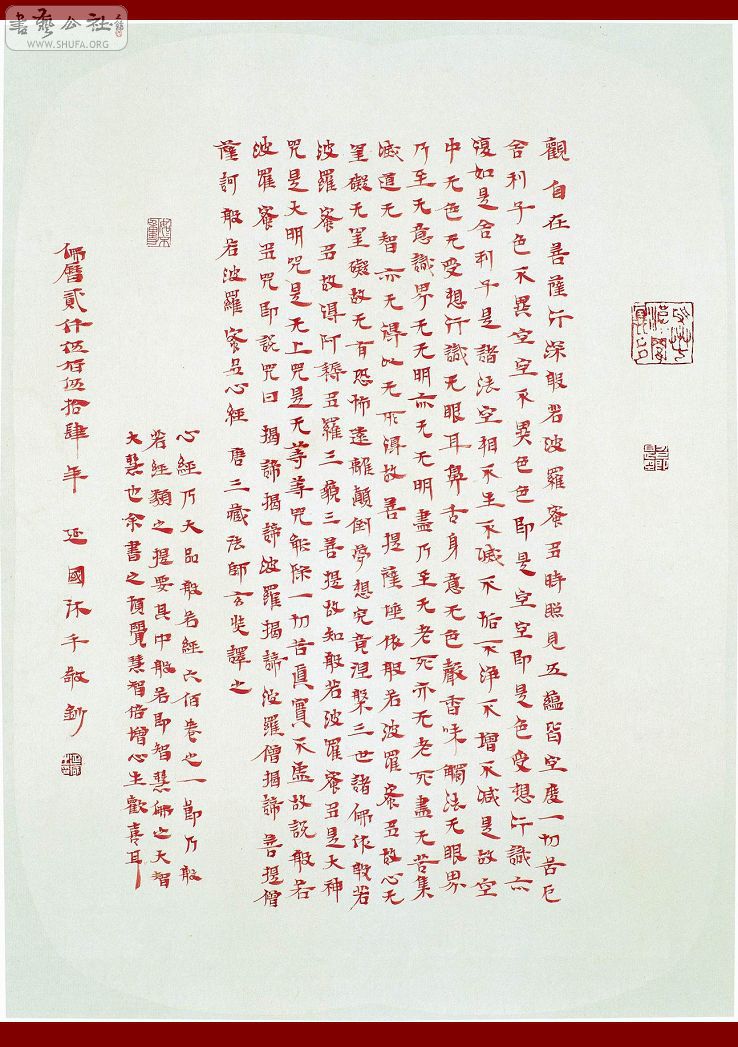 書藝公社
WWW.SHUFA.ORG
觀自在菩薩行深般若波羅蜜多時照見五蘊皆空度一切苦厄
舍利子色不異空空不異色色即是空空即是色受想行識亦
復如是舍利子是諸法空相不生不滅不垢不淨不增不減是故空
中无色无受想行識无眼耳鼻舌身意无色聲香味觸法无眼界
乃至无意識界无无明亦无无明盡乃至无老死亦无老死盡无苦集
滅道无智亦无得以无所得故菩提薩埵依般若波羅蜜多故心无
罣礙无罣礙故无有恐怖遠離顛倒夢想究竟涅槃三世諸佛依般若
波羅蜜多故得阿耨多羅三藐三菩提故知般若波羅蜜多是大神
咒是大明咒是无上咒是无等等咒能除一切苦真實不虛故說般若
波羅蜜多咒即說咒曰揭諦揭諦波羅揭諦波羅僧揭諦菩提僧
薩訶般若波羅蜜多心經 唐三藏法師玄奘譯之
心經乃大品般若經六佰卷之一節乃般
若經類之提要其中般若即智慧佛之大智
大慧也余書之頓覺慧智倍增心生歡喜耳
佛曆貳仟伍佰伍拾肆年 延國沐手敬鈔